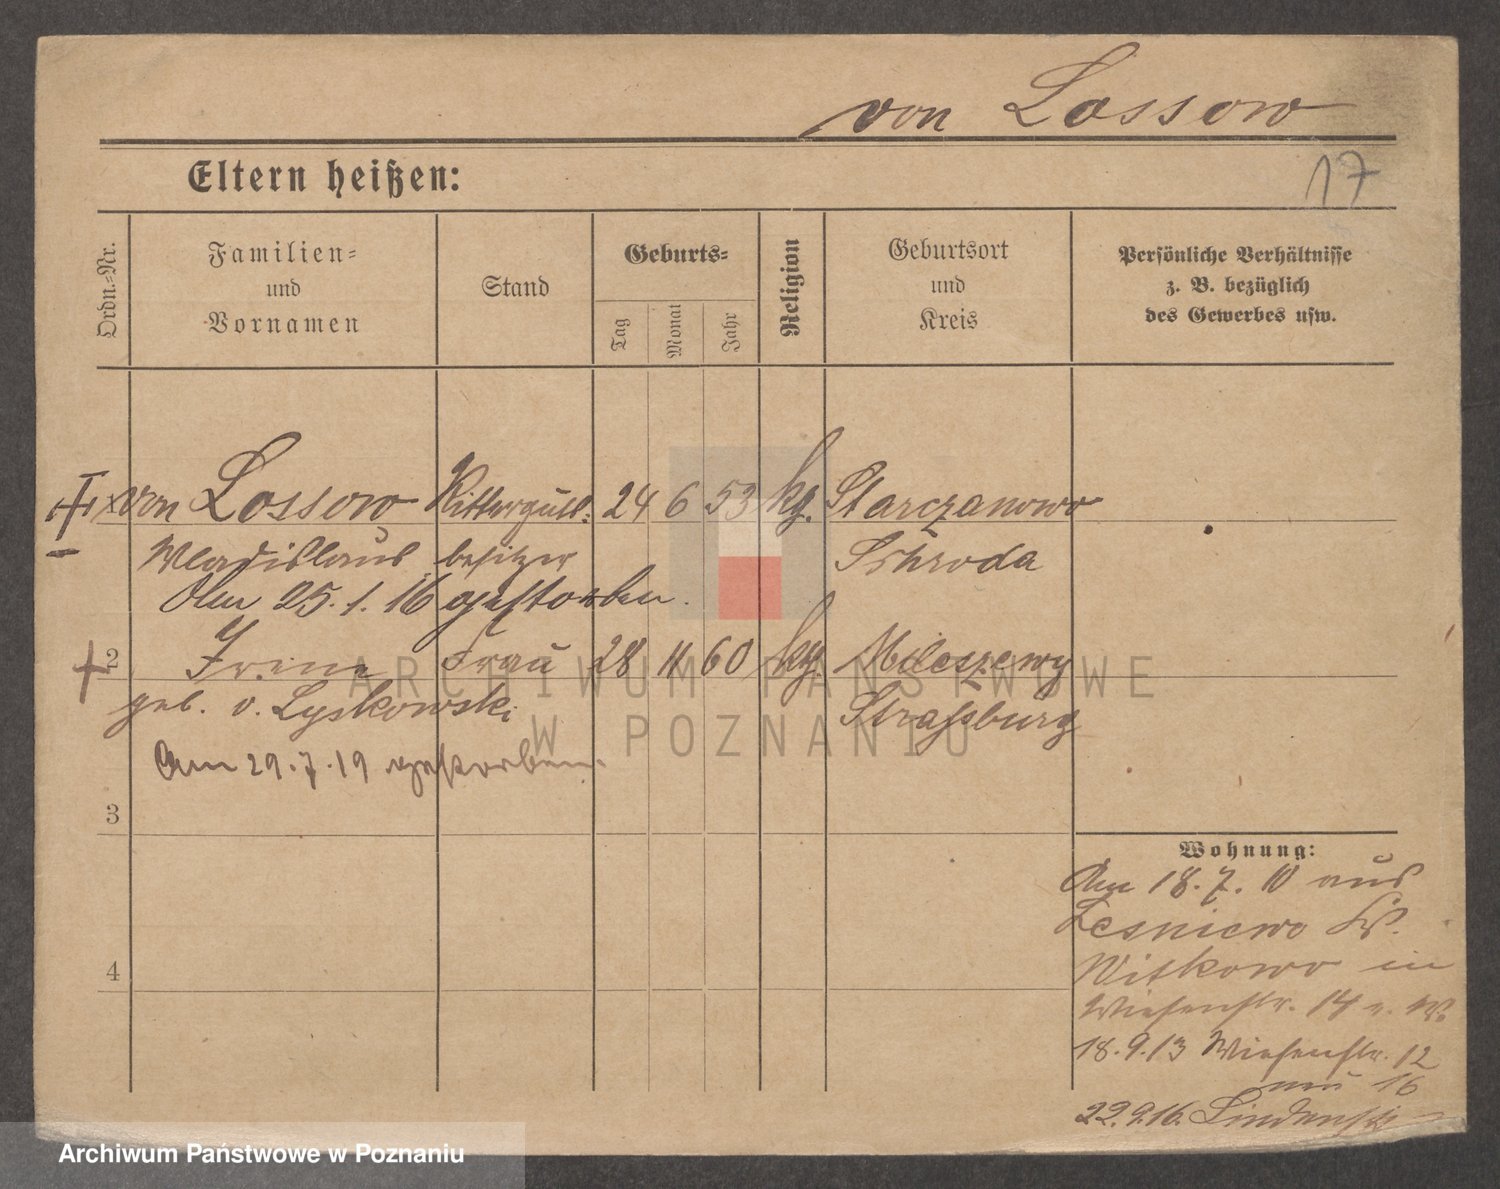 von Lossow
17
Eltern heißen:
Ordn.-Nr.
Familien-
und
Vornamen
Stand
Geburts-
Tag
Monat
Jahr
Religion
Geburtsort
und
Kreis
Persönliche Verhältnisse
z. B. bezüglich
des Gewerbes usw.
von Lossow Ritterguts- 24 6 53 kg. Starczanowo
Wladislaus besitzer Schroda
Am 25.1.16 gestorben.
2 Irene Frau 28 11 60 kg. Mileszewy
geb. v. Lyskowski Straßburg
Am 29.7.19 gestorben.
3
4
Wohnung:
Am 18.7.10 aus
Lesniewo Kr.
Witkowo in
Wiesenstr. 14
18.9.13 Wiesenstr. 12
neu 16
22.9.16. Lindenstr.
ARCHIWUM PAŃSTWOWE
W POZNANIU
Archiwum Państwowe w Poznaniu